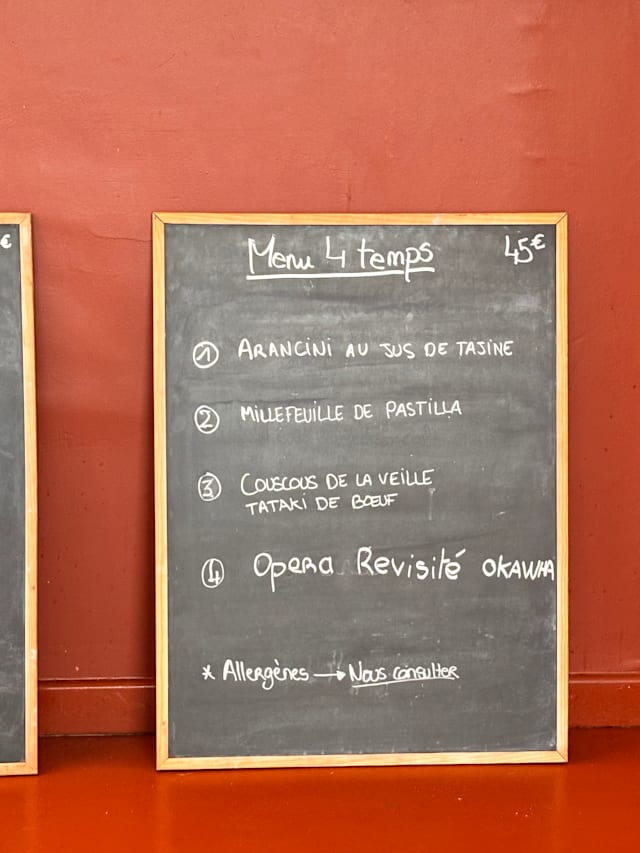 €
Menu 4 temps 45€
1 ARANCINI AU JUS DE TAJINE
2 MILLEFEUILLE DE PASTILLA
3 COUSCOUS DE LA VEILLE
TATAKI DE BŒUF
4 Opera Revisité OKAWHA
* Allergènes → Nous consulter